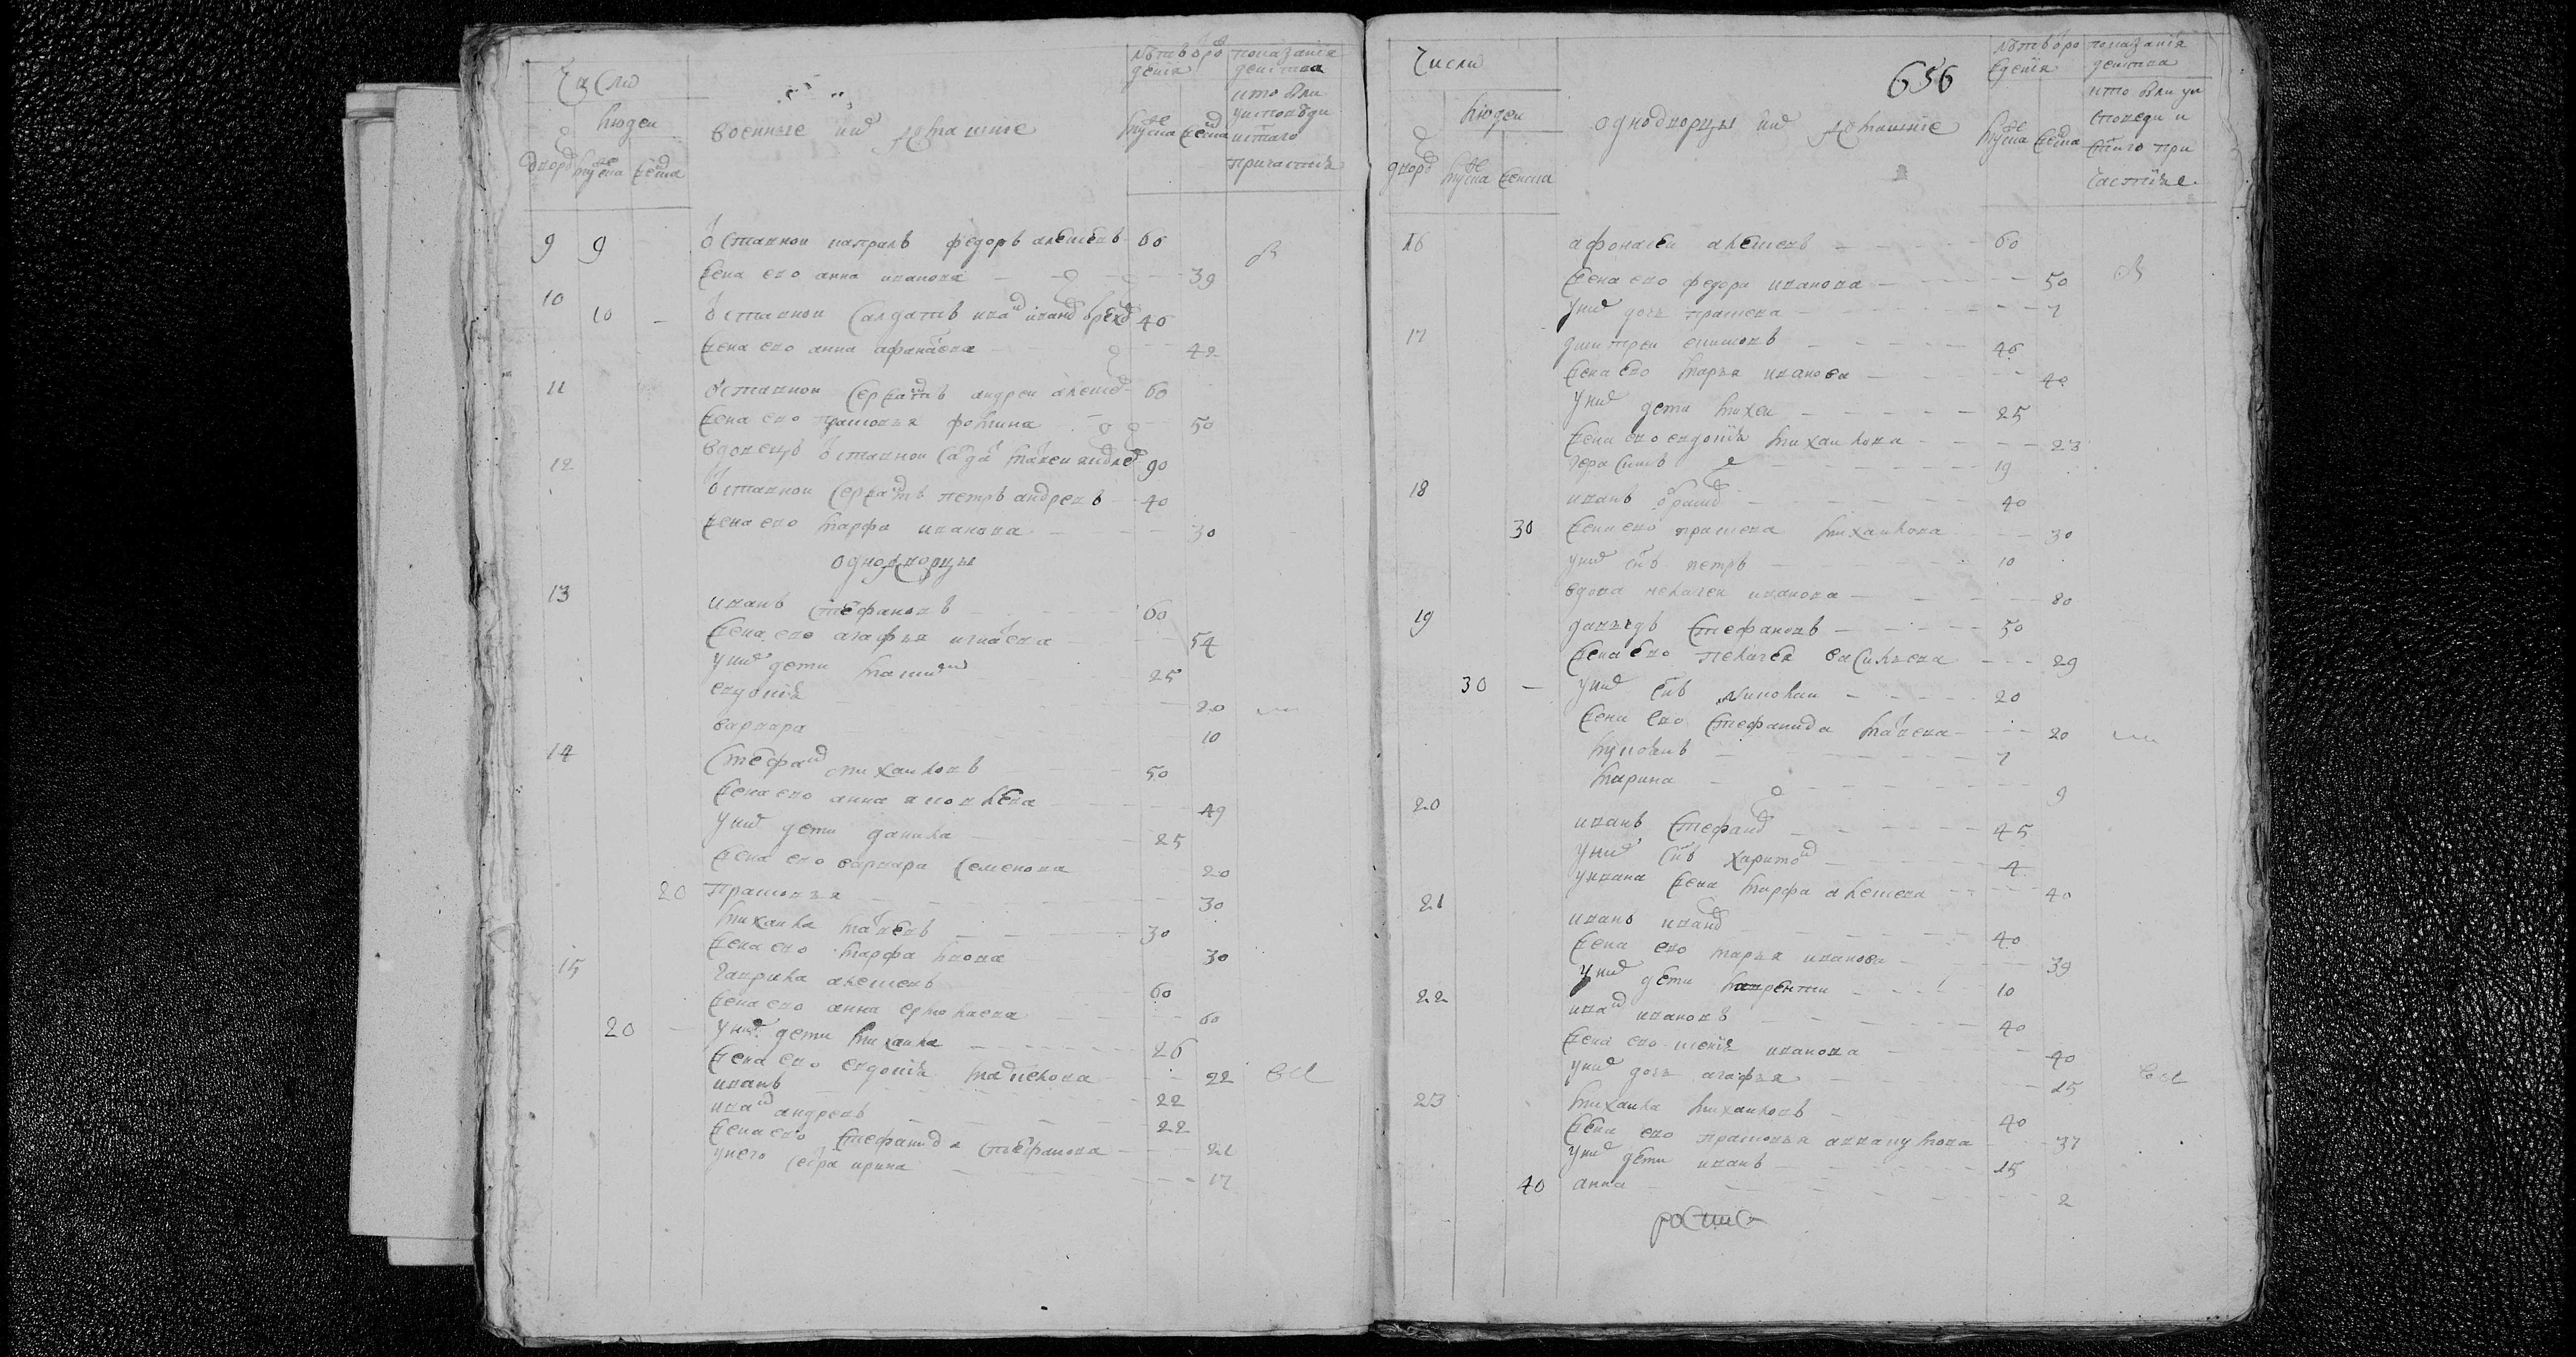 Число
людеи
дворов мужеска женска
военные и их домашние
лѣтъ от рождения
мужеска женска
показания действа
кто был у исповеди и святаго причастия
9 9 отставнои капралъ федоръ алексеевъ 60
жена ево анна иванова 39
10 10 отставнои салдатъ иван иванов 40
жена ево анна афанасева 42
11 отставнои сержантъ андреи алексеев 60
жена ево прасковья фомина 50
12 вдовецъ отставнои 90
отставнои сержантъ петръ андреевъ 40
жена ево марфа иванова 30
однодворцы
13 иванъ стефановъ 60
жена ево агафья игнатева 54
у них дети 25
евдокия 20
варвара 10
14 стефан михаиловъ 50
жена ево анна яковлева 49
у них дети данила 25
жена ево варвара семенова 20
20 прасковья 30
михаила матвеевъ 30
жена ево марфа лвова 30
15 гаврила алексеевъ 60
жена ево анна ермолаева 60
20 у них дети михаила 26
жена ево евдокия 22
иванъ 22
иван андреевъ 22
жена ево стефанида стефанова 21
у него сестра ирина 17
656
Число
людеи
дворов мужеска женска
однодворцы и их домашние
лѣтъ от рождения
мужеска женска
показания действа
кто был у исповеди и святаго причастия
16 афонасеи алексеевъ 60
жена ево федора иванова 50
у них дочь прасковя 7
17 дмитреи 46
жена ево марья иванова 40
у них дети михеи 25
жена ево евдокия михаилова 23
герасимъ 19
18 иванъ 40
30 жена ево прасковя михаилова 30
у них сынъ петръ 10
вдова пелагея иванова 80
19 давыдъ стефановъ 50
жена ево пелагея васильева 29
30 у них сынъ николаи 20
жена ево стефанида матвеева 20
7
марина 9
20 иванъ стефанов 45
у них сынъ харитон 4
у ивана жена марфа алексеева 40
21 иванъ иванов 40
жена ево марья иванова 39
у них дети лаврентии 10
22 иван ивановъ 40
жена ево ксения иванова 40
у них дочь агафья 15
23 михаила михаиловъ 40
жена ево прасковья 37
у них дети иванъ 15
40 анна 2